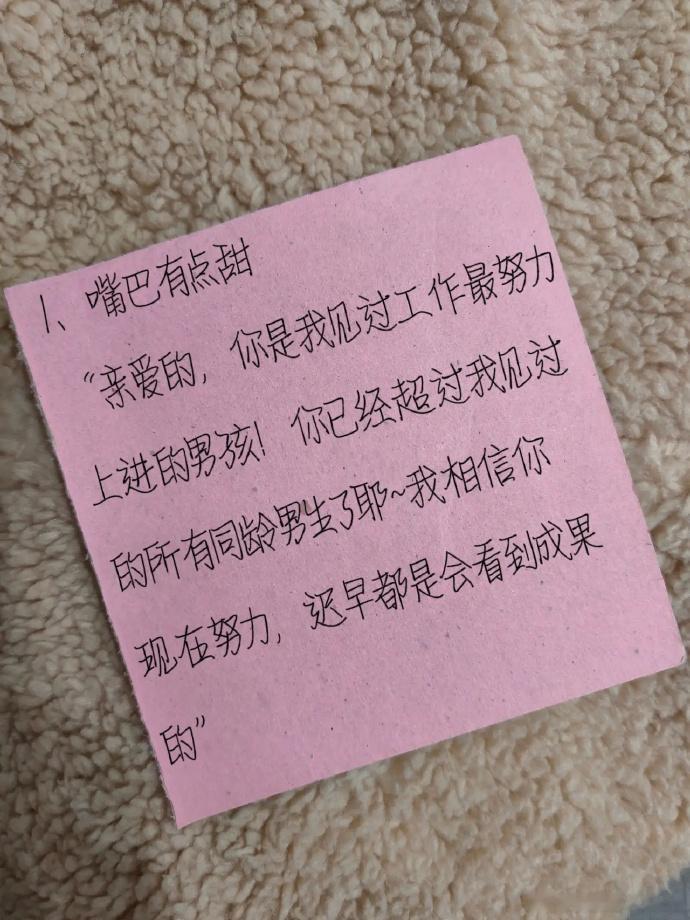 1、嘴巴有点甜
“亲爱的，你是我见过工作最努力
上进的男孩！你已经超过我见过
的所有同龄男生了耶~我相信你
现在努力，迟早都是会看到成果
的”